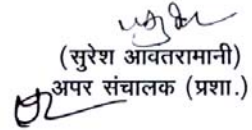 (सुरेश आवतरामानी)
अपर संचालक (प्रशा.)